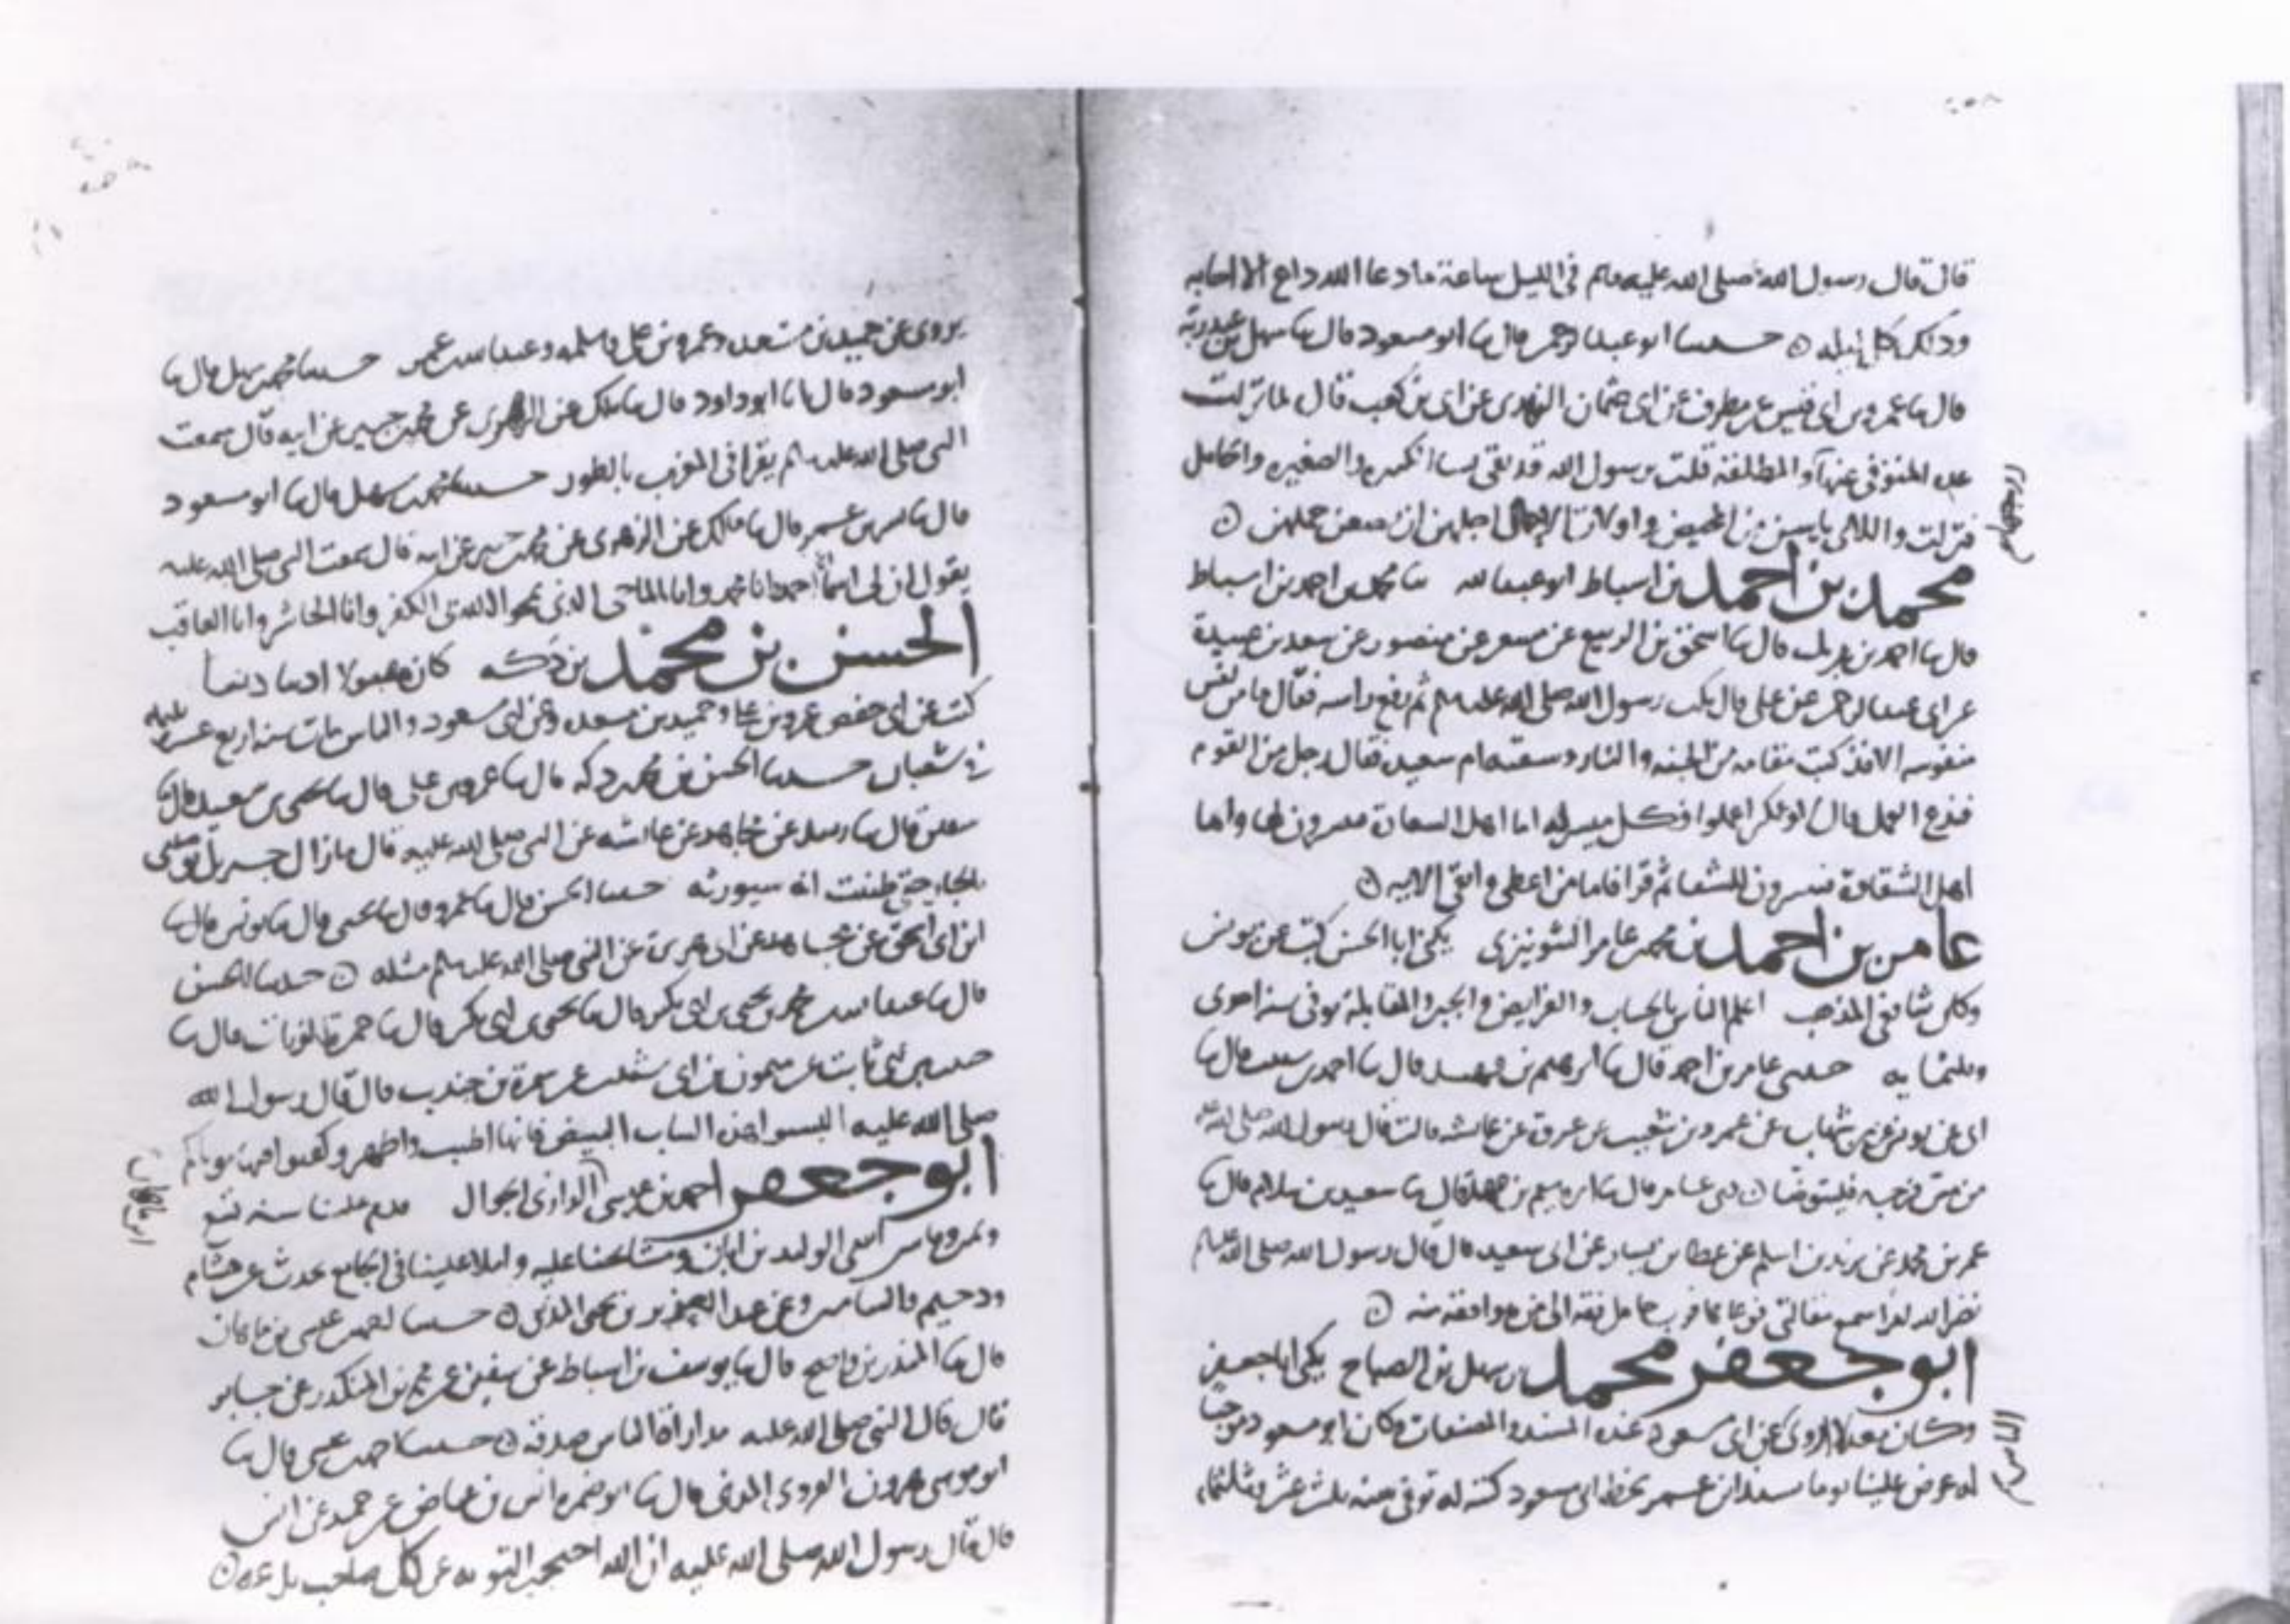 قال قال رسول الله صلى الله عليه وسلم في الليل ساعة ما دعا الله داع الا اجابه
وذلك كل ليله حدثنا ابو عبد الرحمن قال نا ابو مسعود قال نا سهل بن عبد ربه
قال نا عمرو بن ابي قيس عن مطرف عن ابي عثمان النهدي عن ابي بن كعب قال لما نزلت
عده المتوفى عنها والمطلقة قلت يرسول الله قد بقي نسا الكبيره والصغيره والحامل
فنزلت واللائي يايسن من المحيض واولات الاحمال اجلهن ان يضعن حملهن
محمد بن احمد بن اسباط ابو عبد الله نا محمد بن احمد بن اسباط
قال نا احمد بن قال نا اسحق بن الربيع عن مسعر عن منصور عن سعد بن عبيدة
عن ابي عبد الرحمن عن علي قال نكت رسول الله صلى الله عليه وسلم ثم رفع راسه فقال ما من نفس
منفوسه الا قد كتب مقامه من الجنه والنار وسقيه ام سعيد فقال رجل من القوم
العمل قال اعملوا فكل ميسر له اما اهل السعادة ميسرون لها واما
اهل الشقاوة ميسرون للشقا ثم قرا فاما من اعطى واتقى الايه
عامر بن احمد بن محمد بن عامر الشونيزي يكنى ابا الحسن كتب عن يونس
وكان شافعي المذهب اعلم الناس بالحساب والفرايض والجبر والمقابلة توفي سنة احدى
وثلثمايه حدثني عامر بن احمد قال نا ابرهيم بن فهد قال نا احمد بن شبيب قال نا
ابي عن يونس عن بن شهاب عن عمرو بن شعيب عن عروة عن عائشه قالت قال رسول الله صلى الله عليه
من مس فرجه فليتوضا حدثني عامر قال نا ابرهيم بن فهد قال نا سعيد بن سلام قال نا
عمر بن محمد عن زيد بن اسلم عن عطا بن يسار عن ابي سعيد قال قال رسول الله صلى الله عليه وسلم
نضر الله امرا سمع مقالتي فوعاها فرب حامل فقه الى من هو افقه منه
ابو جعفر محمد بن سهل بن الصباح يكنى ابا جعفر
وكان معدلا يروي عن ابي مسعود عنده المسند والمصنفات وكان ابو مسعود
له عرض علينا يوما مسند ابن عمر بخط ابي مسعود كتبه له توفي سنة ثلث عشرة وثلثمايه
يروي عن حميد بن مسعدة وعمرو بن علي وسلمه وعبد الله بن عمر حدثنا محمد بن سهل قال نا
ابو مسعود قال انا ابو داود قال نا ملك عن الزهري عن محمد بن جبير عن ابيه قال سمعت
النبي صلى الله عليه وسلم يقرا في المغرب بالطور حدثنا محمد بن سهل قال نا ابو مسعود
قال نا بشر بن عمر قال نا ملك عن الزهري عن محمد بن جبير عن ابيه قال سمعت النبي صلى الله عليه
يقول ان لي اسماء احمد وانا محمد وانا الماحي الذي يمحو الله بي الكفر وانا الحاشر وانا العاقب
الحسن بن محمد بن دكه كان مقبولا اديبا دينا
كتب عن ابي حفص عمرو بن علي وحميد بن مسعدة وعن ابي مسعود والناس مات سنة اربع عشرة
في شعبان حدثنا الحسن بن محمد بن دكه قال نا عمرو بن علي قال نا يحيى بن سعيد قال نا
سفين قال نا زبيد عن مجاهد عن عائشه عن النبي صلى الله عليه قال ما زال جبريل يوصيني
بالجار حتى ظننت انه سيورثه حدثنا الحسن قال نا عمرو قال نا يحيى قال نا يونس قال نا
ابن ابي اسحق عن مجاهد عن ابي هريرة عن النبي صلى الله عليه وسلم مثله حدثنا الحسن
قال نا عبد الله بن محمد بن يحيى بن ابي بكر قال نا يحيى بن ابي بكر قال نا حمزة الزيات قال نا
حبيب بن ابي ثابت عن ميمون بن ابي شبيب عن سمرة بن جندب قال قال رسول الله
صلى الله عليه البسوا هذه الثياب البيض فانها اطيب واطهر وكفنوا فيها موتاكم
ابو جعفر احمد بن عيسى الرازي الجمال قدم علينا سنة تسع
وثمنين الوليد بن ابان ومشايخنا عليه واملا علينا في الجامع يحدث عن هشام
ودحيم والشاميين وعن عبد العزيز بن يحيى المدني حدثنا احمد بن عيسى بن ماهان
قال نا المنذر بن واضح قال نا يوسف بن اسباط عن سفين عن محمد بن المنكدر عن جابر
قال قال النبي صلى الله عليه مداراة الناس صدقه حدثنا احمد بن عيسى قال نا
ابو موسى هرون الفروي المدني قال نا ابو ضمره انس بن عياض عن حميد عن انس
قال قال رسول الله صلى الله عليه ان الله احتجب التوبه عن كل صاحب بدعه